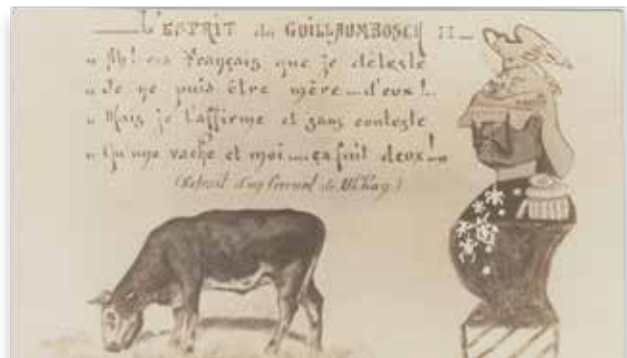 L'ESPRIT de GUILLAUMBOSCH II
„ Ah! ces Français que je déteste
„ Je ne puis être mère... d'eux!..
„ Mais je l'affirme et sans conteste
„ Qu'une vache et moi... ça fait deux!..
(Extrait d'un de